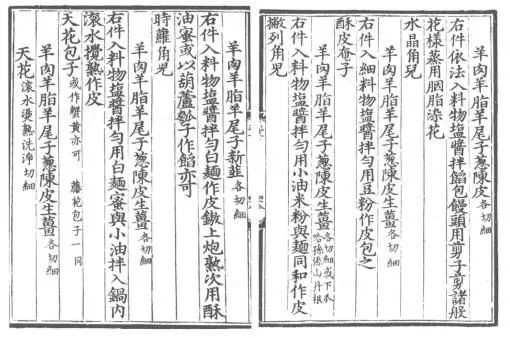 羊肉羊脂羊尾子葱陳皮生薑各切細
右件依法入料物塩醬拌餡包饅頭用剪子剪諸般
花樣蒸用胭脂染花
水晶角兒
羊肉羊脂羊尾子葱陳皮生薑各切細
右件入細料物塩醬拌勻用豆粉作皮包之
酥皮奄子
羊肉羊脂羊尾子葱陳皮生薑各切細或下瓜哈孫係山丹根
右件入料物塩醬拌勻用小油米粉與麺同和作皮
撇列角兒
羊肉羊脂羊尾子新韮各切細
右件入料物塩醬拌勻白麺作皮鏊上炮熟次用酥
油蜜或以葫蘆瓠子作餡亦可
時蘿角兒
羊肉羊脂羊尾子葱陳皮生薑各切細
右件入料物塩醬拌勻用白麺蜜與小油拌入鍋內
滚水攪熟作皮
天花包子或作蟹黄亦可 藤花包子一同
羊肉羊脂羊尾子葱陳皮生薑各切細
天花滚水燙熟洗淨切細